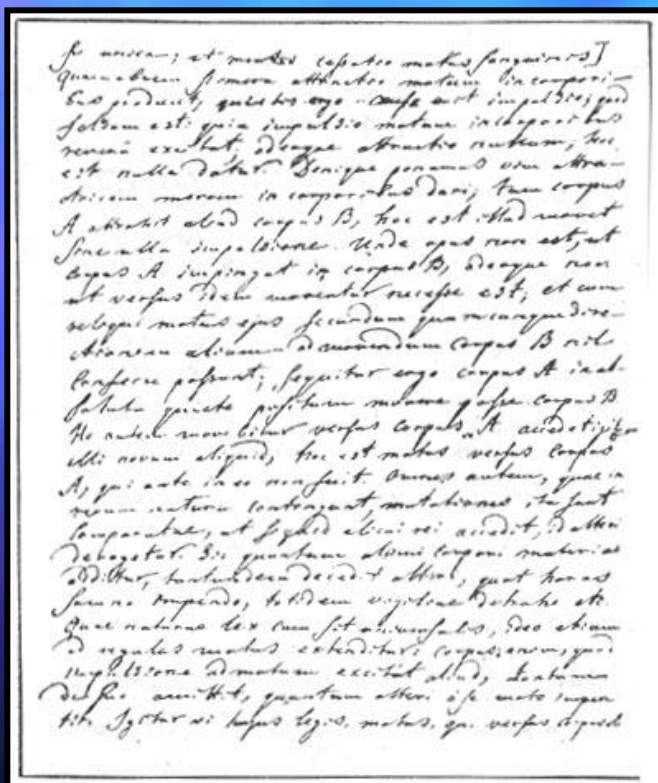 se unica; et mortis cessatio motus sanguinis]
Quamobrem si mera attractio motum in corpori-
bus producit, questus ergo est impulsio; quod
falsum est: quia impulsio motum in corporibus
revera excitat, adeoque attractio nullum, hoc
est nulla datur. Denique ponamus vim attra-
ctricem meram in corporibus dari; tum corpus
A attrahit aliud corpus B, hoc est illud movet
sine ulla impulsione. Unde opus non est, ut
corpus A impingat in corpus B, adeoque non
ut versus idem moveatur necesse est; et cum
reliqui motus ejus secundum quamcunque dire-
ctionem aliam ad movendum corpus B nil
conferre possunt; sequitur ergo corpus A in ab-
soluta quiete positum movere posse corpus B.
Ho autem movebitur versus corpus A accedet igitur
illi novum aliquid, hoc est motus versus corpus
A, qui ante in eo non fuit. Omnes autem, quae in
rerum natura contingunt, mutationes ita sunt
comparatae, ut si quid alicui rei accedit, id alteri
derogetur. Sic quantum alicui corpori materiae
additur, tantundem decedit alteri, quot horas
somno impendo, totidem vigiliae detraho etc.
Quae naturae lex cum sit universalis, ideo etiam
ad regulas motus extenditur: corpus enim, quod
impulsione ad motum excitat aliud, tantum
de suo amittit, quantum alteri a se moto imper-
tit. Igitur vi hujus legis, motus, qui versus corpus